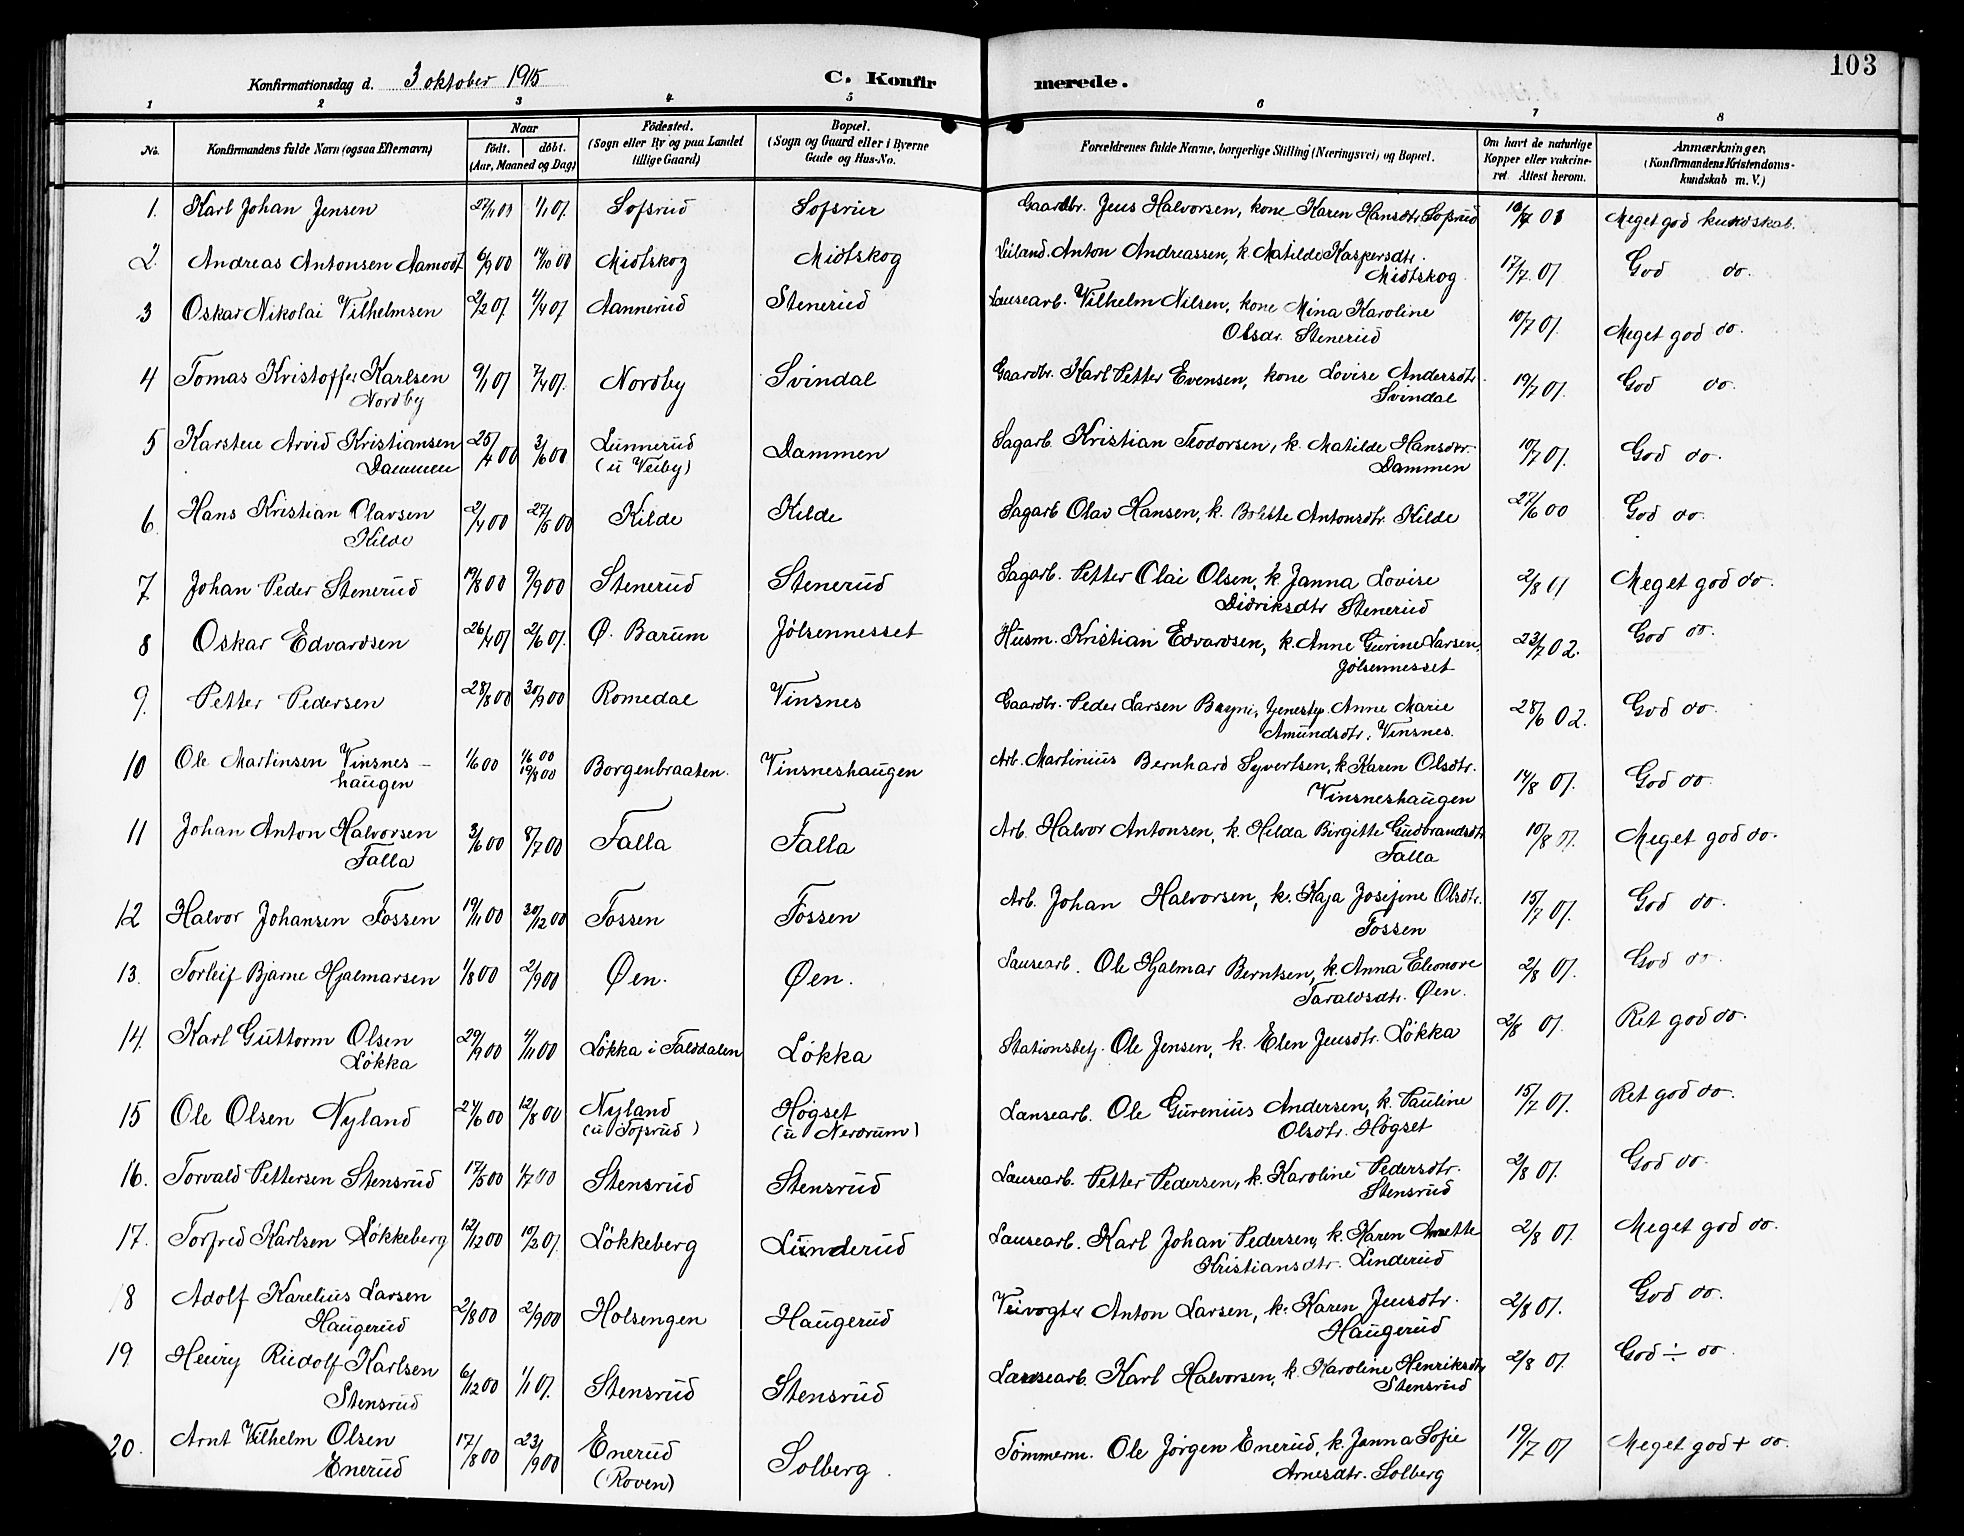 103
Konfirmationsdag d. 3 oktober 1915 C. Konfirmerede.
1 2 3 4 5 6 7 8
No. Konfirmandens fulde Navn (ogsaa Efternavn) Naar født. døbt. (Aar, Maaned og Dag) Fødested. (Sogn eller By og paa Landet tillige Gaard) Bopæl. (Sogn og Gaard eller i Byerne Gade og Hus-No. Forældrenes fulde Navne, borgerlige Stilling (Næringsvei) og Bopæl. Om havt de naturlige Kopper eller vakcineret. Attest herom. Anmærkninger, (Konfirmandens Kristendomskundskab m. V.)
1. Karl Johan Jensen 27/1 01 1/1 01. Sofsrud Sofsrud Gaardbr. Jens Halvorsen, kone Karen Hansdtr. Sofsrud 10/7 01 Meget god kundskab.
2. Andreas Antonsen Aamodt 6/9 00 14/10 00 Midtskog Midtskog Leiland. Anton Andreassen, k. Matilde Kaspersdtr.
Midtskog. 17/7 01 God do.
3 Oskar Nikolai Vilhelmsen 2/2 01. 4/4 01 Aannerud Stenerud Lausearb. Vilhelm Nilsen, kone Mina Karoline
Olsdr. Stenerud 10/7 01. Meget god do.
4 Tomas Kristoffer Karlsen 9/1 01 7/4 01. Nordby Svindal Gaardbr. Karl Petter Evensen, kone Lovise Andersdtr.
Nordby Svindal 19/7 01. God do.
5 Karsten Arvid Kristiansen 25/4 00 3/6 00 Lunnerud Dammen Sagarb. Kristian Teodorsen, k. Matilde Hansdtr.
Dammen (u Veiby) Dammen 10/7 01. God do.
6. Hans Kristian Olavsen 2/4 00 27/5 00 Kilde Kilde Sagarb Olav Hansen, k. Bolette Antonsdtr. Kilde 27/6 00 God do.
Kilde
7. Johan Peder Stenerud 19/8 00 9/9 00 Stenerud Stenerud Sagarb. Petter Olai Olsen, k. Janna Lovise
Didriksdtr Stenerud 2/8 01 Meget god do.
8 Oskar Edvardsen 26/4 01 2/6 01. Ø. Barum Jølsennesset Husm. Kristian Edvardsen, k. Anne Gurine Larsen,
Jølsennesset 23/7 02. God do.
9. Petter Pedersen 28/8 00 30/9 00 Romedal Vinsnes Gaardbr. Peder Larsen Bagni, tjenestep. Anne Marie
Amundsdtr. Vinsnes. 28/6 02. God do.
10 Ole Martinsen Vinsnes- 1/6 00 1/6 00 Borgenbraaten. Vinsneshaugen Arb. Martinius Bernhard Syvertsen, k. Karen Olsdtr.
haugen 19/8 00 Vinsneshaugen 14/8 01. God do.
11 Johan Anton Halvorsen 3/6 00 8/7 00 Falla Falla Arb. Halvor Antonsen, k. Hilda Birgitte Gudbrandsdtr
Falla Falla 10/8 01. Meget god do.
12 Halvor Johansen Fossen 19/11 00 30/12 00 Fossen Fossen Arb. Johan Halvorsen, k. Kaja Josefine Olsdtr.
Fossen 15/7 01. God do.
13. Torleif Bjarne Hjalmarsen 1/8 00 2/9 00 Øen. Øen. Lausearb. Ole Hjalmar Berntsen, k. Anna Eleonore
Taraldsdtr. Øen. 2/8 01. God do.
14. Karl Guttorm Olsen 29/9 00 4/11 00 Løkka i Falsdalen Løkka Stationsbetj. Ole Jensen, k. Elen Jensdtr. Løkka 2/8 01. Ret god do.
Løkka
15 Ole Olsen Nyland 24/6 00 12/8 00 Nyland Høgset Lausearb. Ole Gurenius Andersen, k. Pauline
(u Sofsrud) (u Nerdrum) Olsdtr. Høgset 15/7 01. Ret god do.
16. Torvald Pettersen Stensrud 17/5 00 1/7 00 Stensrud Stensrud Lausearb. Petter Pedersen, k. Karoline Pedersdtr.
Stensrud 2/8 01. God do.
17. Torfred Karlsen Løkkeberg 12/12 00 10/2 01. Løkkeberg Linderud Lausearb. Karl Johan Pedersen, k. Karen Anette
Kristiansdtr. Linderud 2/8 01. Meget god do.
18 Adolf Karelius Larsen 2/8 00 2/9 00 Holsengen Haugerud Veivogter Anton Larsen, k. Karen Jensdtr.
Haugerud Haugerud 2/8 01. God do.
19 Henry Rudolf Karlsen 6/12 00 1/1 01. Stensrud Stensrud Lausearb. Karl Halvorsen, k. Karoline Henriksdtr
Stensrud Stensrud 2/8 01. God ÷ do.
20. Arnt Vilhelm Olsen 17/8 00 23/9 00 Enerud Solberg. Tømmerm. Ole Jørgen Enerud, k. Janna Sofie
Enerud (Roven) Arnesdtr. Solberg 19/7 01 Meget god + do.